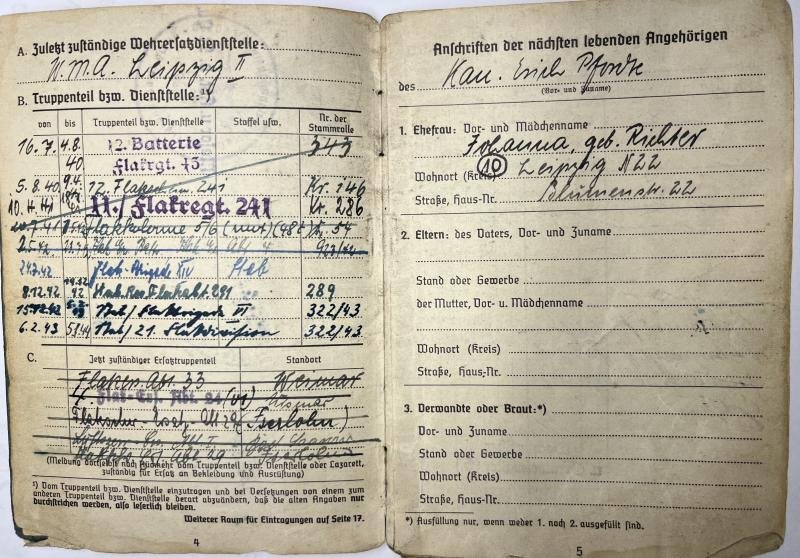 A. Zuletzt zuständige Wehrersatzdienststelle:
W.M.A. Leipzig II
B. Truppenteil bzw. Dienststelle:¹)
von bis Truppenteil bzw. Dienststelle Staffel usw. Nr. der Stammrolle
16.7. 4.8. 12. Batterie 343
40 Flakrgt. 43
5.8.40 9.4. 12. 241 Kr. 146
10.4.41 11./ Flakregt. 241 Kr. 286
Flakkolonne 5/6 (mot) 54
2.5.42
24.7.42 Flak-Brigade XIV Stab
8.12.42 Flakabt. 291 289
15.12.42 Stab/ Flakbrigade VI 322/43
6.2.43 Stab/21. Flakdivision 322/43
C. Jetzt zuständiger Ersatztruppenteil Standort
Flakers. Abt. 33 Weimar
Flak-Ers. Abt. 24/(VI)
Iserlohn)
(Meldung dortselbst nach Rückkehr vom Truppenteil bzw. Dienststelle oder Lazarett,
zuständig für Ersatz an Bekleidung und Ausrüstung)
¹) Vom Truppenteil bzw. Dienststelle einzutragen und bei Versetzungen von einem zum
anderen Truppenteil bzw. Dienststelle derart abzuändern, daß die alten Angaben nur
durchstrichen werden, also leserlich bleiben.
Weiterer Raum für Eintragungen auf Seite 17.
4
Anschriften der nächsten lebenden Angehörigen
des Kan. Erich Pforte
(Vor- und Zuname)
1. Ehefrau: Vor- und Mädchenname
Johanna, geb. Richter
Wohnort (Kreis) (10) Leipzig N22
Straße, Haus-Nr. Blumenstr. 22
2. Eltern: des Vaters, Vor- und Zuname
Stand oder Gewerbe
der Mutter, Vor- u. Mädchenname
Wohnort (Kreis)
Straße, Haus-Nr.
3. Verwandte oder Braut:*)
Vor- und Zuname
Stand oder Gewerbe
Wohnort (Kreis)
Straße, Haus-Nr.
*) Ausfüllung nur, wenn weder 1. noch 2. ausgefüllt sind.
5